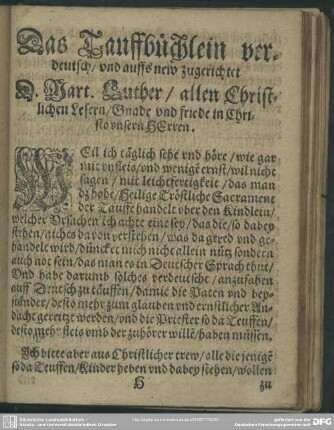 Das Tauffbüchlein ver-
deutsch / vnd auffs new zugerichtet
D. Mart. Luther / allen Christ-
lichen Lesern / Gnade vnd friede in Chri-
sto vnsern HErren.
WEil ich täglich sehe vnd höre / wie gar
mit vnfleis / vnd wenigē ernst / wil nicht
sagen / mit leichtfertigkeit / das man
dz hohe / Heilige Tröstliche Sacrament
der Tauffe handelt vber den Kindlein /
welcher Vrsachen ich achte eine sey / das die / so dabey
stehen / nichts davon verstehen / was da gered vnd ge-
handelt wird / düncket mich nicht allein nütz sondern
auch not sein / das man es in Deutscher Sprach thut /
Vnd habe darumb solches verdeutscht / anzufahen
auff Deutsch zu täuffen / damit die Paten vnd bey-
ständer / desto mehr zum glauben vnd ernstlicher An-
dacht gereitzt werden / vnd die Priester so da Teuffen /
desto mehr fleis vmb der zuhörer willē / haben müssen.
Ich bitte aber aus Christlicher trew / alle die jenigē
so da Teuffen / Kinder heben vnd dabey stehen / wollen
H
zu